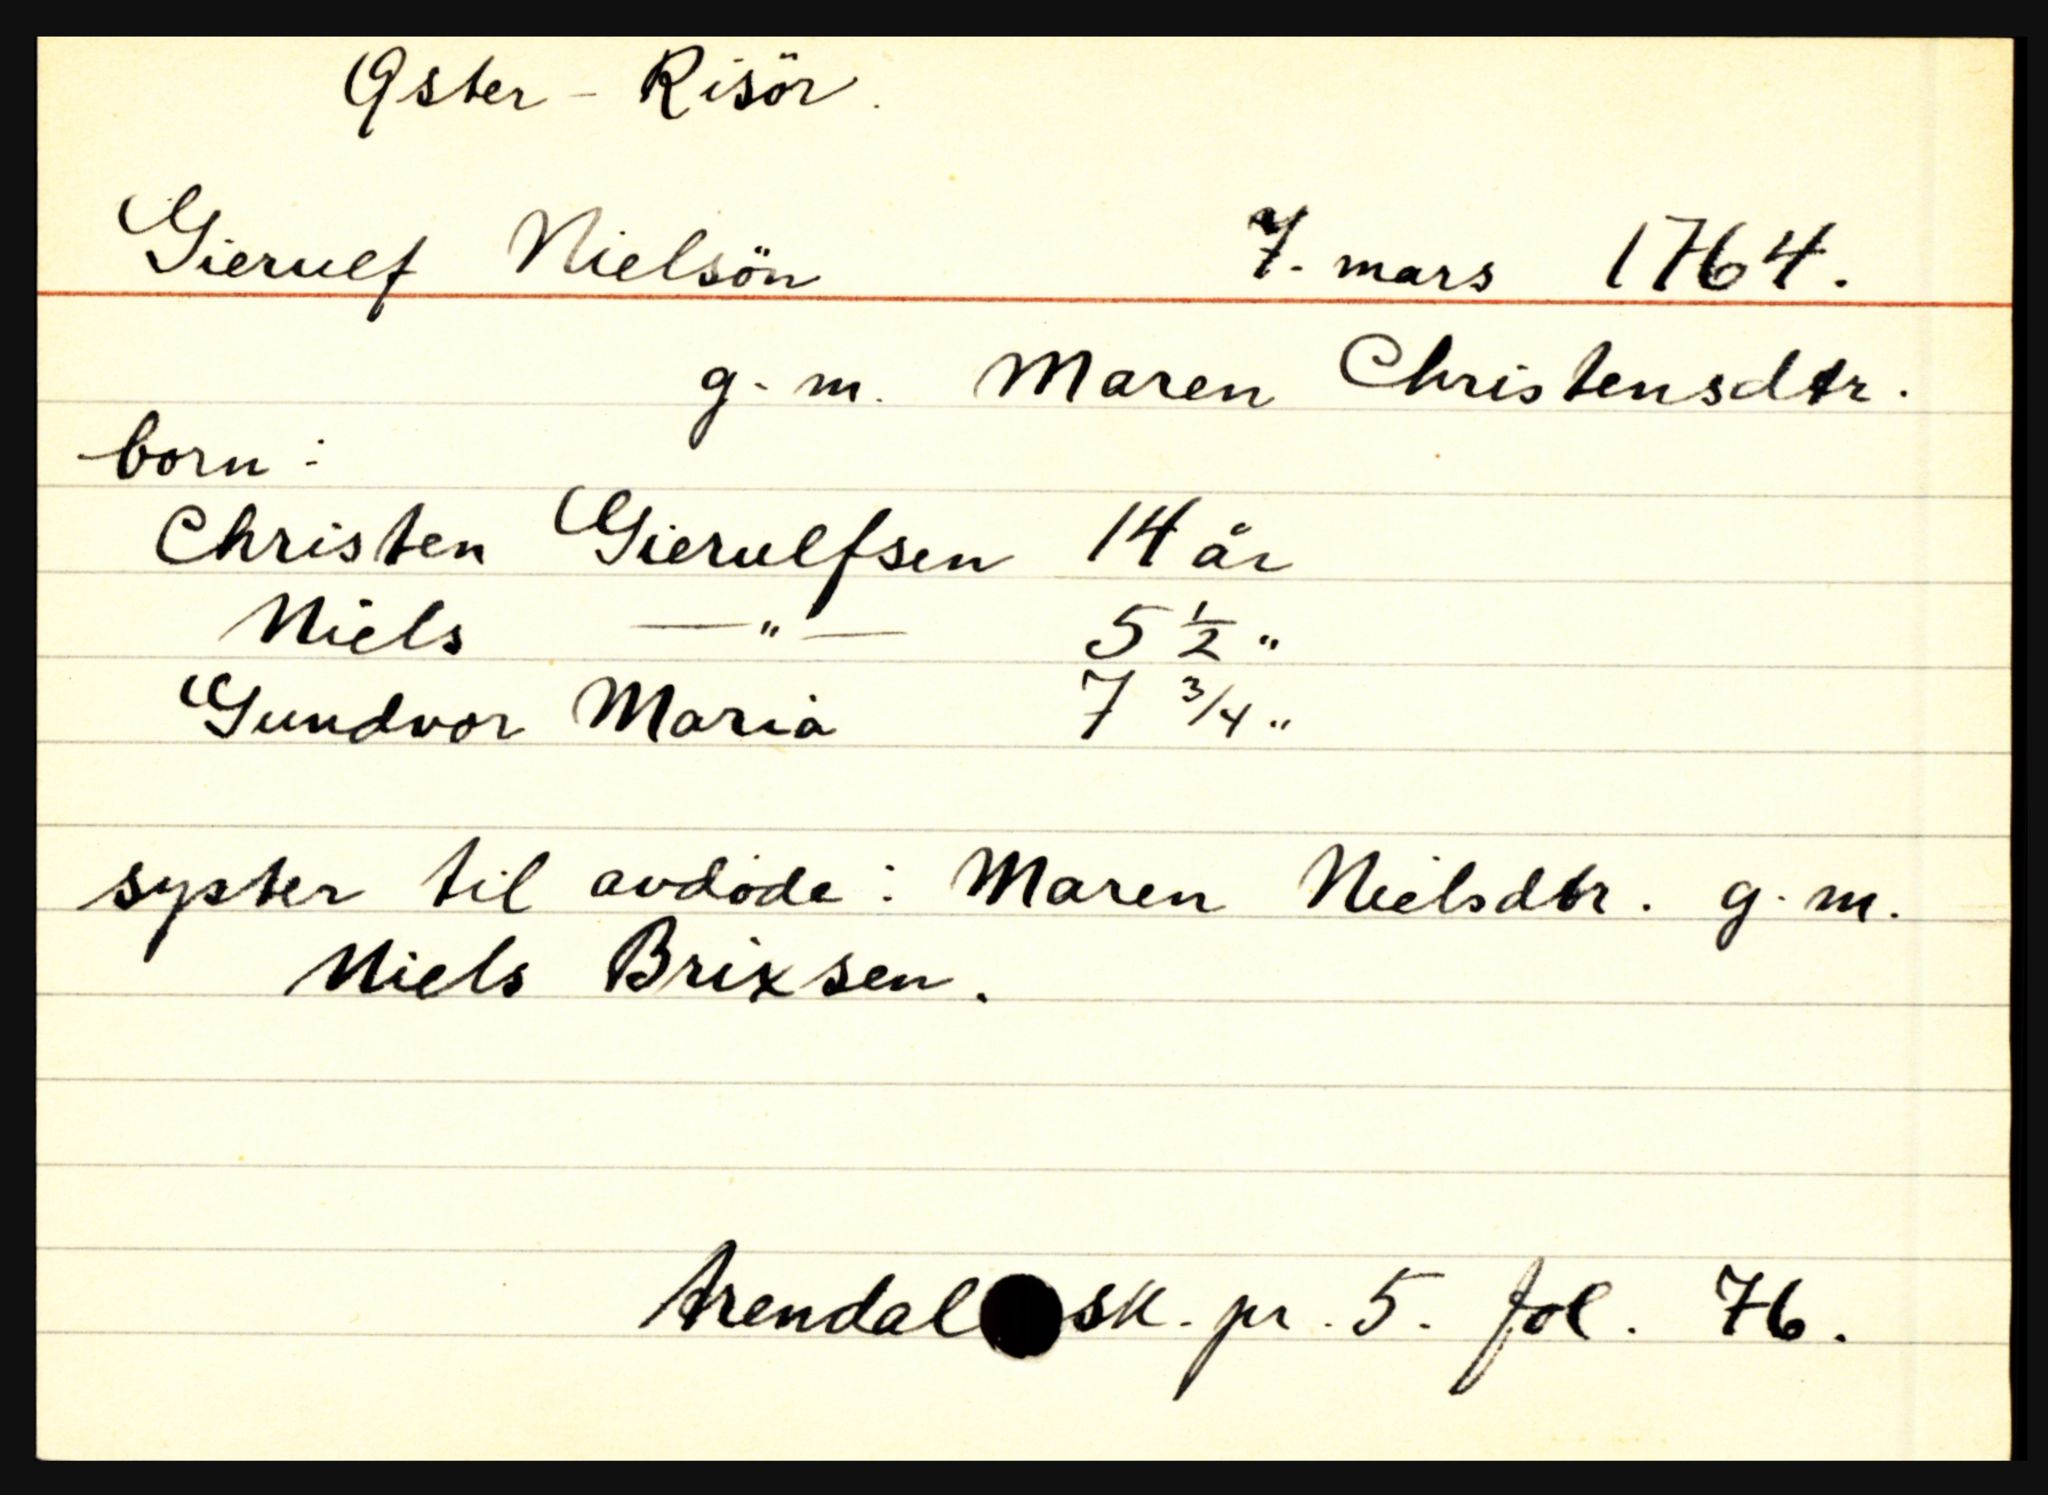 Öster - Risör.
Gierulf Nielsön 7. mars 1764.
g. m. Maren Christensdtr.
born:
Christen Gierulfsen 14 år
Niels —"— 5 1/2 "
Gundvor Maria 7 3/4 "
syster til avdöde: Maren Nielsdtr. g. m.
Niels Brixsen.
Arendal sk. pr. 5. fol. 76.